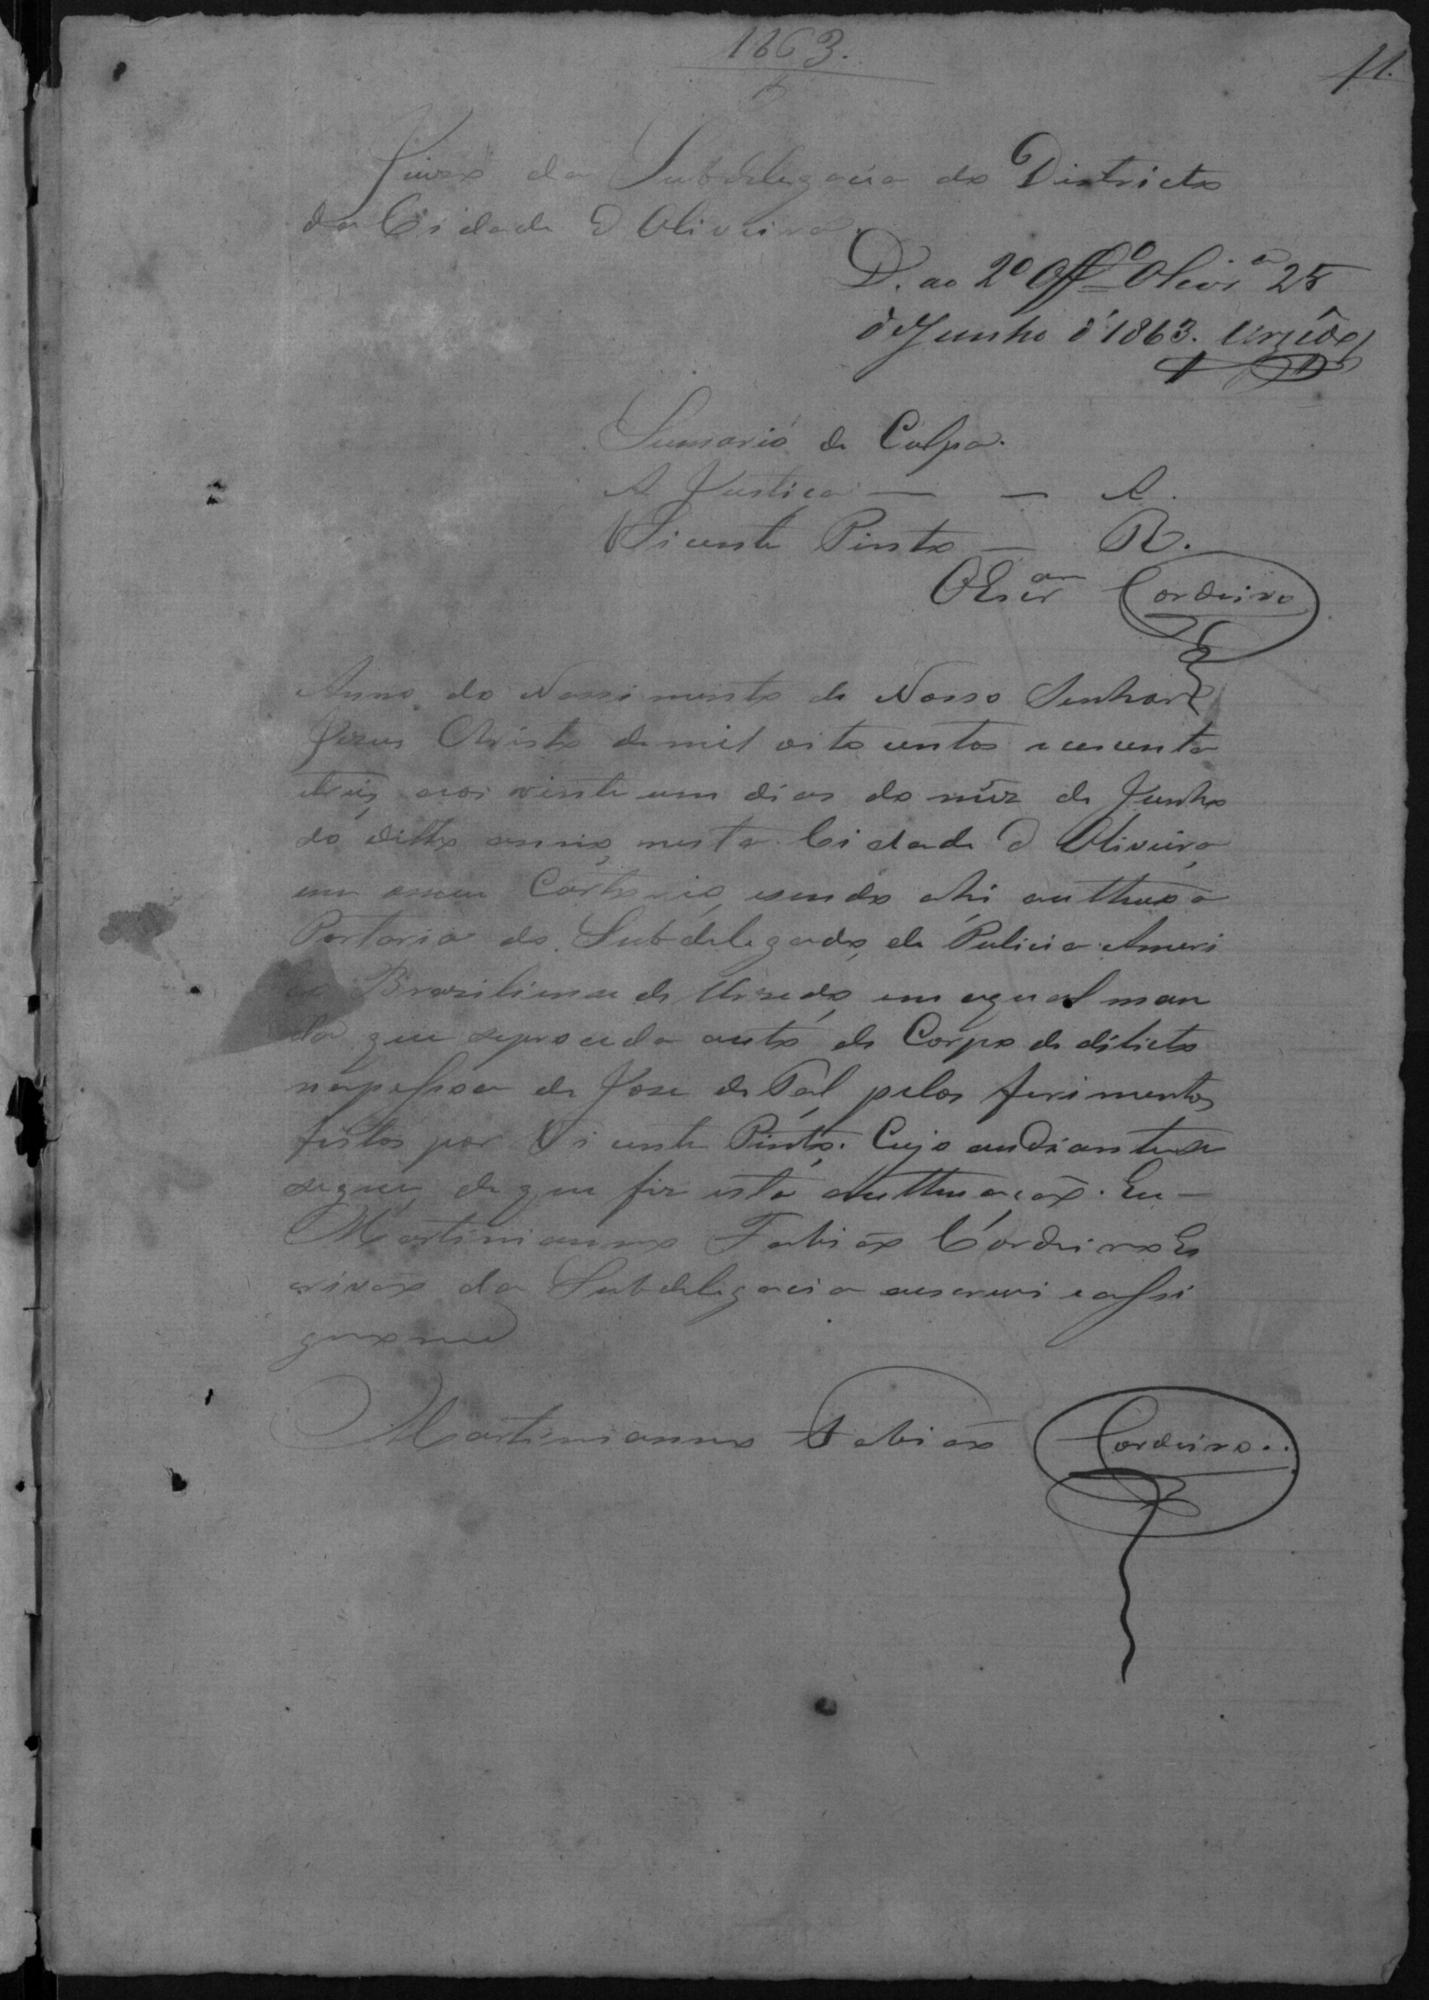 1863.
f1.
Juizo da Subdelegacia do Districto
da Cidade d Oliveira.
D. ao 2º Offº Olivrª 25
d'Junho d'1863.
Sumario de Culpa.
A Justiça — — A.
Vicente Pinto — R.
O Escram Cordeiro
Anno do Nassimento de Nosso Senhor
Jezus Christo de mil oito centos e cecenta
treis, aos vinte um dias do mêz de Junho
do ditto anno, nesta Cidade d Oliveira,
em omeu Cartorio, sendo ahi authuo a
Portaria do Subdelegado de Pulicia Ameri
co Braziliense de Urzedo, em aqual man
da que seproceda auto de Corpo de dilicto
napessoa de Jose de Tal, pelos ferimentos
feitos por Vicente Pinto. Cujo audiante se
segue, de que fiz esta authuação. Eu —
Martinianno Fabião Cordeiro Es
crivão da Subdelegacia aescrevi eassi
gno me
Martinianno Fabião Cordeiro..